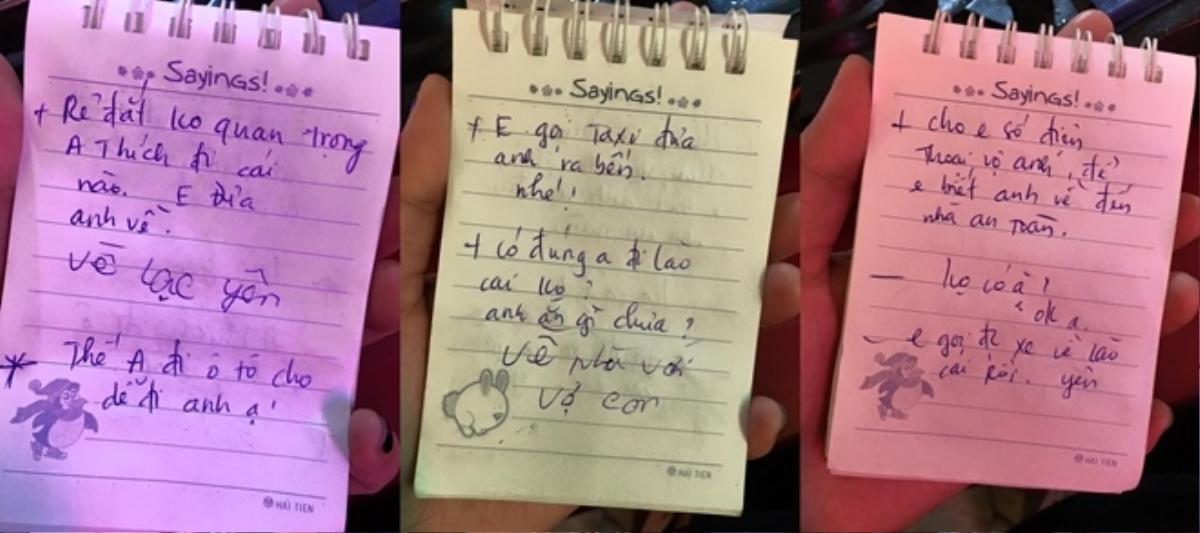 Sayings!
+ Rẻ đắt ko quan trọng
A Thích đi cái
nào. E Đưa
anh về.
về Lạc yên
* Thế A đi ô tô cho
dễ đi anh ạ!
HẢI TIẾN
Sayings!
+ E gọi Taxi đưa
anh ra bến.
nhé!
+ có đúng a đi lào
cai ko?
anh ăn gì chưa?
về nhà với
vợ con
HẢI TIẾN
Sayings!
+ cho e số điện
thoại vợ anh, để
e biết anh về đến
nhà an toàn.
— ko có à?
ok ạ.
- e gọi đc xe về lào
cai rồi. yên
HẢI TIẾN